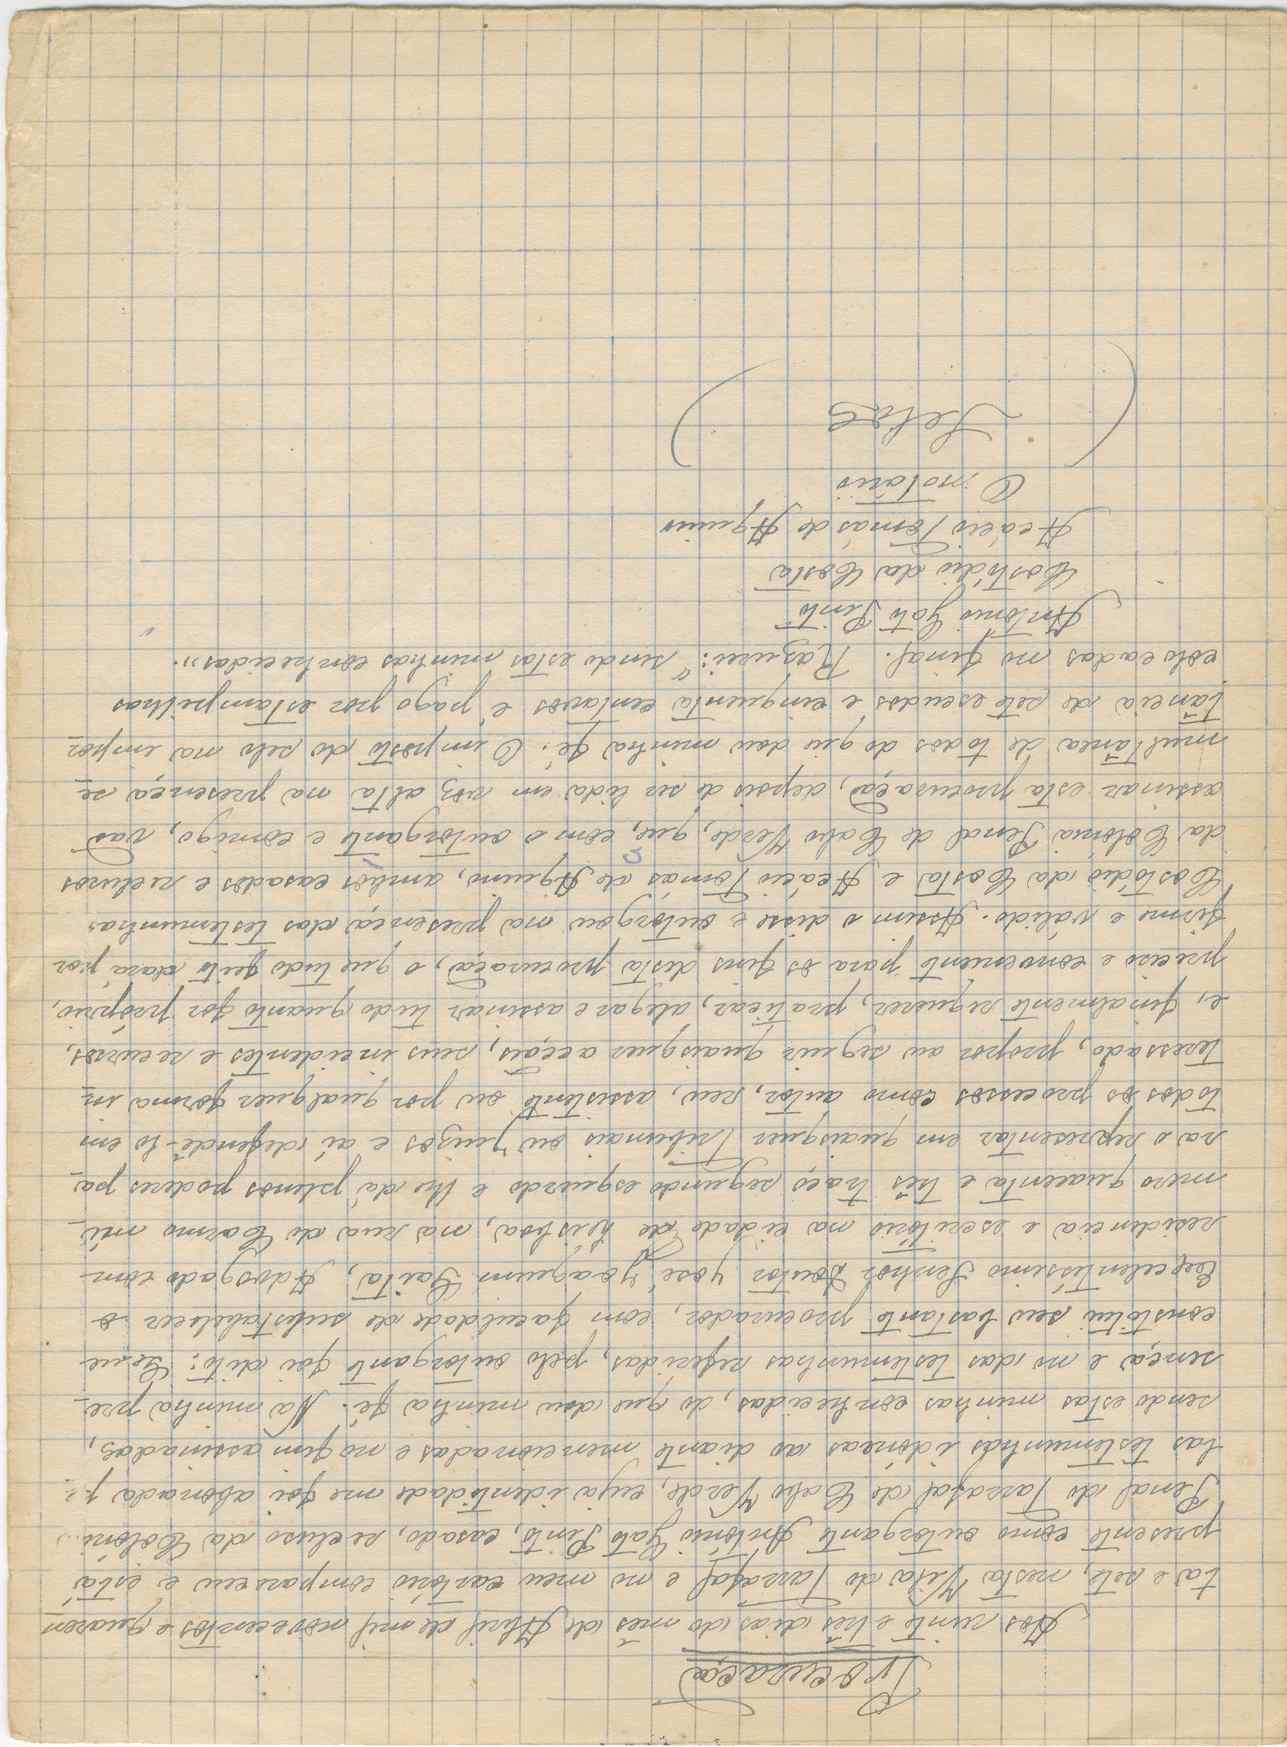 Procuração
Aos vinte e três dias do mês de Abril de mil novecentos e quaren
ta e sete, nesta Vila do Tarrafal e no meu cartório compareceu e está
presente como outorgante António Gato Pinto, casado, recluso da Colóni
Penal do Tarrafal de Cabo Verde, cuja identidade me foi abonada p
las testemunhas idóneas ao diante mencionadas e no fim assinadas,
sendo estas minhas conhecidas, do que dou minha fé. Na minha pre-
sença e no das testemunhas referidas, pelo outorgante foi dito: Que
constitui seu bastante procurador, com faculdade de substabelecer o
Excelentíssimo Senhor Doutor José Joaquim Gaita, Advogado com
residencia e escritório na cidade de Lisboa, na rua do Carmo nú-
mero quarenta e três traço segundo esquerdo e lhe dá plenos poderes pa
ra o representar em quaisquer Tribunais ou Juizos e aí defendê-lo em
todos os processos como autor, reu, assistente ou por qualquer forma in
teressado, propor ou seguir quaisquer acções, seus incidentes e recursos,
e, finalmente requerer, praticar, alegar e assinar tudo quanto for próprio,
preciso e conveniente para os fins desta procuração, o que tudo feito dará por
firme e válido. Assim o disse e outorgou na presença das testemunhas
Costódio da Costa e Acácio Tomás de Aquino, ambos casados e reclusos
da Colónia Penal de Cabo Verde, que, com o outorgante e comigo, vão
assinar esta procuração, depois de ser lida em voz alta na presença si
multânea de todos do que dou minha fé. O imposto do selo na impor
tância de sete escudos e cinquenta centavos é pago por estampilhas
colocadas no final. Rasurei: "sendo estas minhas conhecidas".
António Gato Pinto
Costódio da Costa
Acácio Tomás de Aquino
O notário